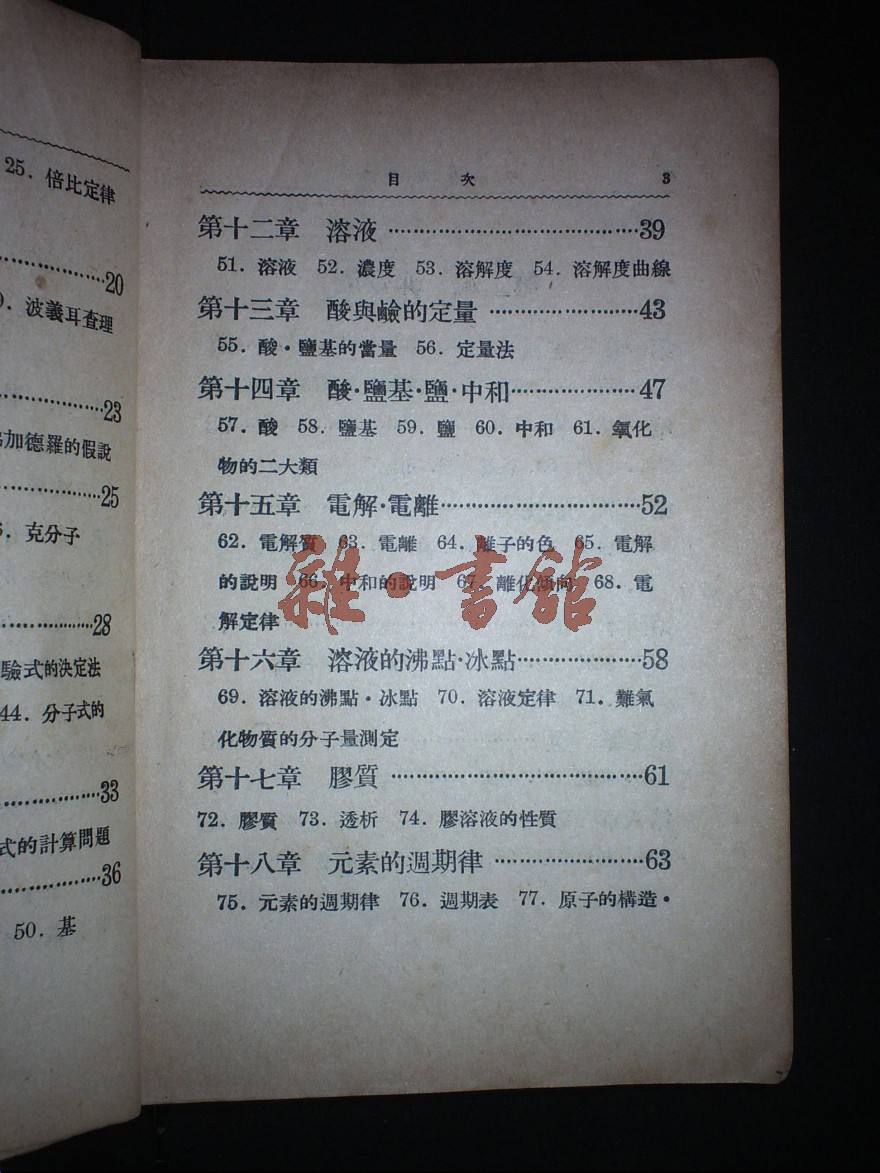 25. 倍比定律
20
波義耳查理
23
加德羅的假說
25
克分子
28
驗式的決定法
44. 分子式的
33
式的計算問題
36
50. 基
目 次 3
第十二章 溶液 39
51. 溶液 52. 濃度 53. 溶解度 54. 溶解度曲線
第十三章 酸與鹼的定量 43
55. 酸・鹽基的當量 56. 定量法
第十四章 酸・鹽基・鹽・中和 47
57. 酸 58. 鹽基 59. 鹽 60. 中和 61. 氧化
物的二大類
第十五章 電解・電離 52
62. 電解質 63. 電離 64. 離子的色 65. 電解
的說明 66. 中和的說明 67. 離化傾向 68. 電
解定律
第十六章 溶液的沸點・冰點 58
69. 溶液的沸點・冰點 70. 溶液定律 71. 難氣
化物質的分子量測定
第十七章 膠質 61
72. 膠質 73. 透析 74. 膠溶液的性質
第十八章 元素的週期律 63
75. 元素的週期律 76. 週期表 77. 原子的構造・
雜・書館